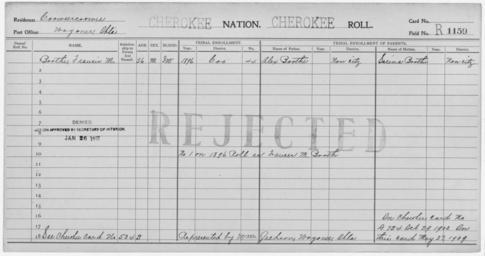 Residence:
Post Office: Wagoner Okla
CHEROKEE NATION. CHEROKEE ROLL.
Card No.
Field No. R 1159
Dawes' Roll No. NAME. AGE SEX BLOOD TRIBAL ENROLLMENT. TRIBAL ENROLLMENT OF PARENTS.
Year. District. No. Name of Father. Year. District. Name of Mother. Year. District.
1 Booth, Francis M. 26 M IW 1896 Coo Alex Booth Non city Serena Booth Non city
2
3
4
5
6
DENIED
ON APPROVED BY SECRETARY OF INTERIOR
JAN 26 1907
REJECTED
10 No 1 on 1896 Roll as M. Booth
11
12
13
14
15
16 See Cherokee Card No
17 Oct 29 1902
18 See Cherokee Card No. Represented by Wm Jackson, Wagoner Okla this card May 27, 1909